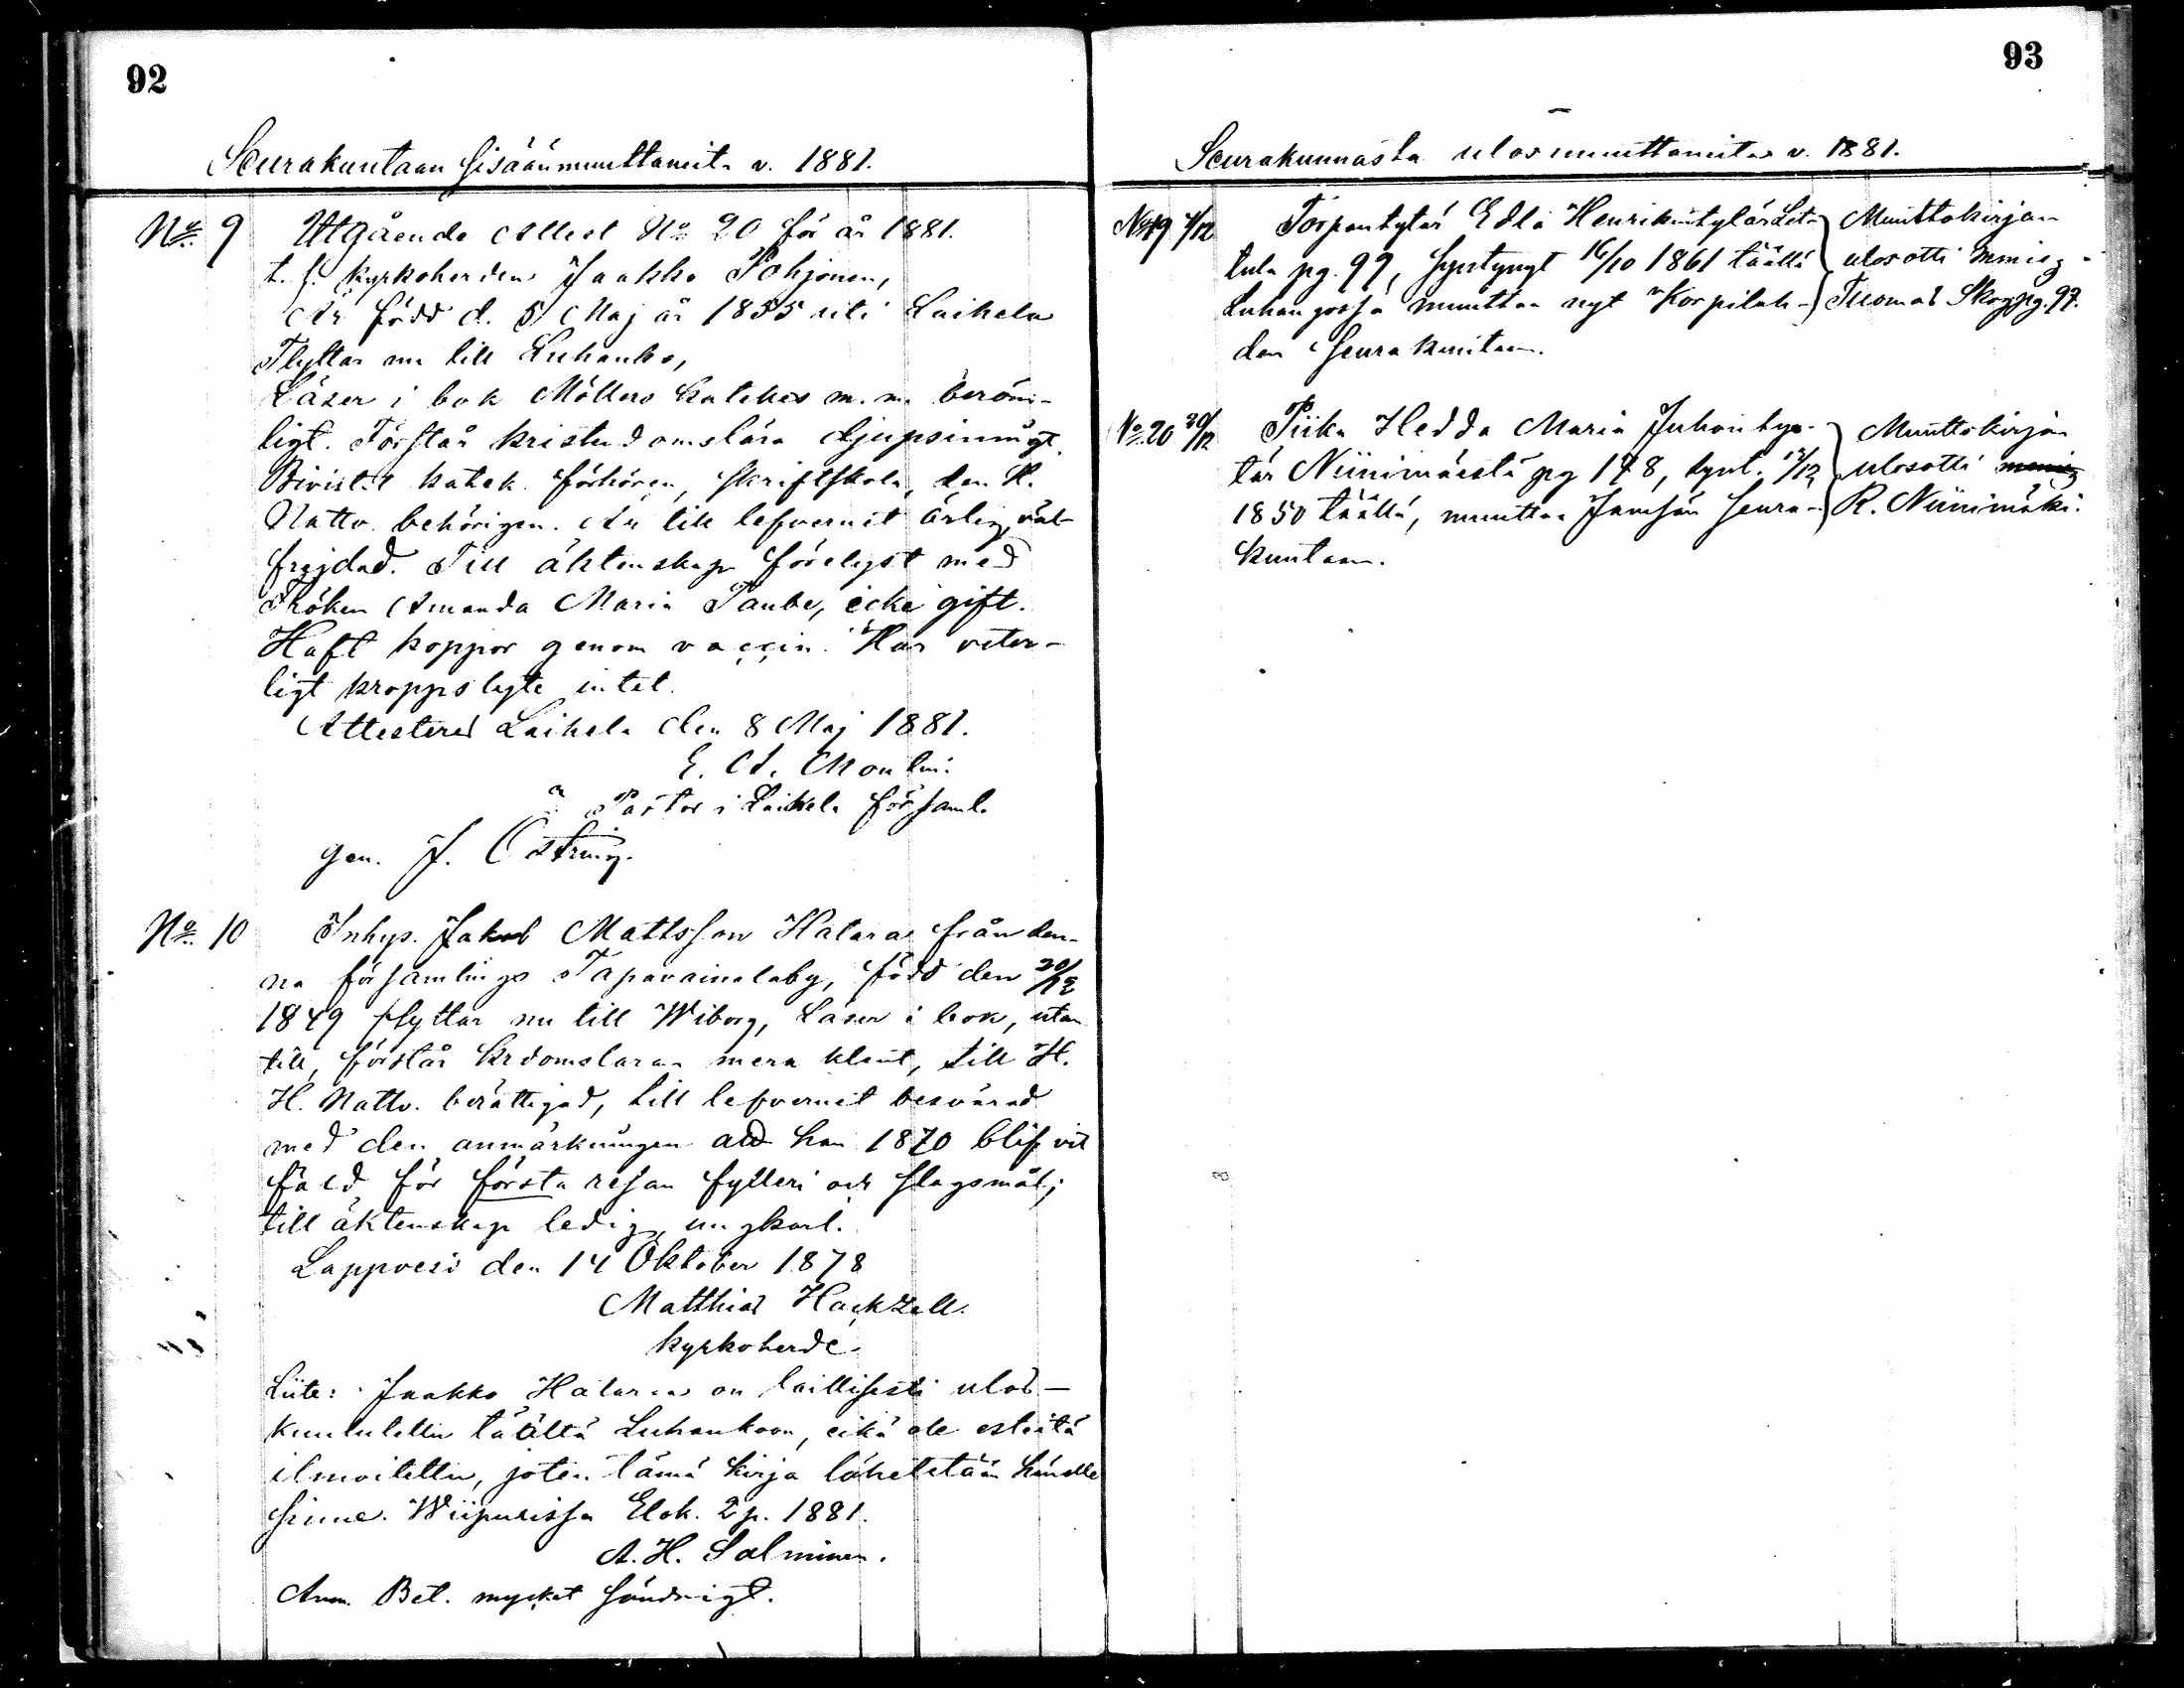 92
Seurakuntaan sisäänmuuttaneita v. 1881.
No. 9 Utgående Attest No 20 för år 1881.
t. f. kyrkoherden Jaakko Pohjonen,
Är född d. 5 Maj år 1855 uti Laihela
Flyttar nu till Luhanko,
Läser i bok Möllers Katekes m. m. beröm-
ligt. Förstår kristendomslära djupsinnigt.
Bivistat katek. förhören, skriftskola, den H.
Nattv. behörigen. Är till lefvernet ärlig, väl
frejdad. Till äktenskap förelyst med
Fröken Amanda Maria Taube, icke gift.
Haft koppor genom vaccin. Har veter-
ligt kroppslyte intet.
Attesteras Laihela den 8 Maj 1881.
E. A.
Pastor i Laihela församl.
gen. J. Östring.
No. 10 Inhys. Jakob Mattsson Hatara från den-
na församlings Tapavainolaby, född den 20/12
1849 flyttar nu till Wiborg, Läser i bok, utan
till, förstår krdomslaran mera klent, till H.
H. Nattv. berättigad, till lefvernet besvärad
med den anmärkningen att han 1870 blifvit
fäld för första resan fylleri och slagsmål;
till äktenskap ledig, ungkarl.
Lappvesi den 14 Oktober 1878
Matthias Hackzell.
kyrkoherde
Liite: Jaakko Hatara on laillisesti ulos-
kuulutettu täältä Luhankoon, eikä ole esteitä
ilmoitettu, joten tämä kirja lähetetään hänelle
sinne. Wiipurissa Elok. 2 p. 1881.
A. H. Salminen.
Anm. Bet. mycket söndrigt.
93
Seurakunnasta ulosmuuttaneita v. 1881.
No 19 7/12 Torpantytär Edla Henrikintytär Leta-
tula pg. 99, syntynyt 16/10 1861 täällä
Luhangossa muuttaa nyt Korpilah-
den seurakuntaan.
Muuttokirjan
ulosotti
Tuomas Skog pg. 97.
No. 20 20/12 Piika Hedda Maria Juhontyt-
tär Niinimäestä pg 148, synt. 12/12
1850 täällä, muuttaa Jämsän seura-
kuntaan.
Muuttokirjan
ulosotti
R. Niinimäki.